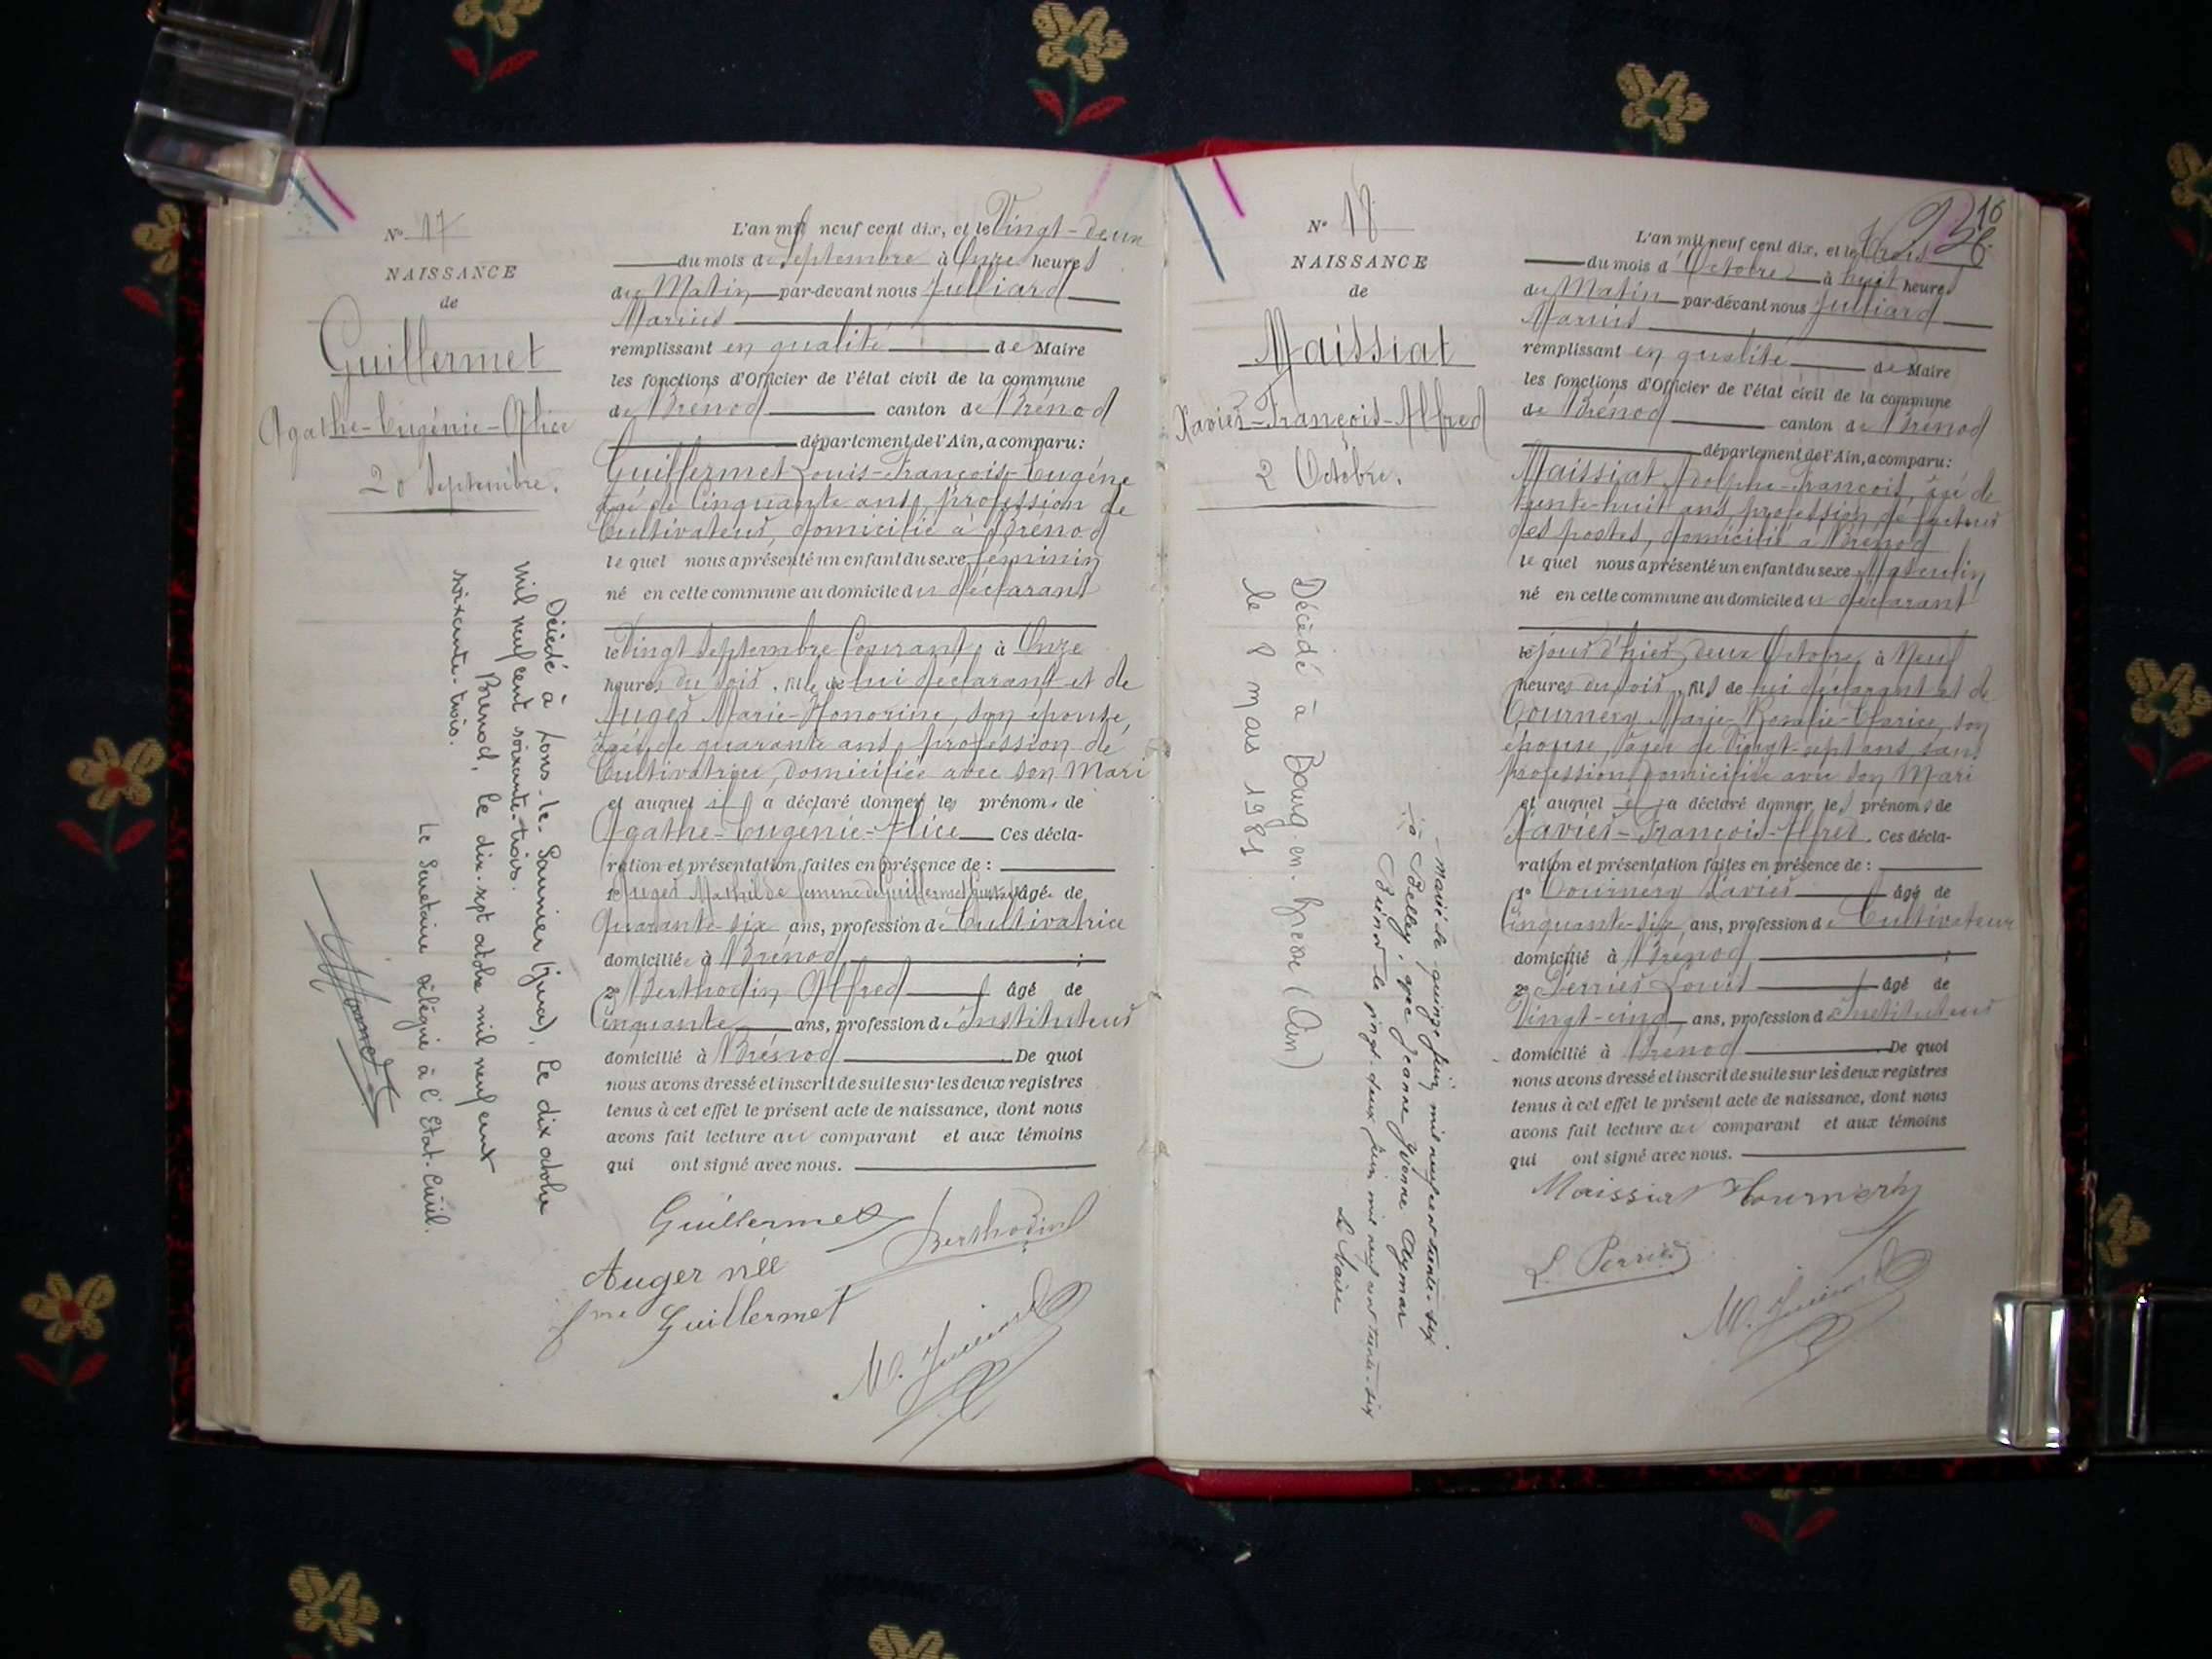 N° 17
NAISSANCE
de
Guillermet
Agathe-Eugénie-Alice
20 Septembre.
Décédé à Lons-le-Saunier (Jura). Le dix octobre
mil neuf cent soixante-trois.
Brénod, le dix-sept octobre mil neuf cent
soixante-trois.
Le Secrétaire délégué à l'Etat-Civil.
L'an mil neuf cent dix, et le Vingt-deux
du mois de Septembre à Onze heures
du Matin par-devant nous Julliard
Marius
remplissant en qualité de Maire
les fonctions d'Officier de l'état civil de la commune
de Brénod canton de Brénod
département de l'Ain, a comparu:
Guillermet Louis-François-Eugène
âgé de Cinquante ans, profession de
Cultivateur, domicilié à Brénod
le quel nous a présenté un enfant du sexe féminin
né en cette commune au domicile du déclarant
le Vingt Septembre Courant, à Onze
heures du soir, fille de lui déclarant et de
Auger Marie-Honorine, son épouse,
âgée de quarante ans, profession de
Cultivatrice, domiciliée avec son Mari
et auquel il a déclaré donner les prénoms de
Agathe-Eugénie-Alice Ces décla-
ration et présentation faites en présence de :
1° Auger Mathilde femme de Guillermet âgée de
Quarante-six ans, profession de Cultivatrice
domiciliée à Brénod ;
2° Berthodin Alfred âgé de
Cinquante ans, profession d'Instituteur
domicilié à Brénod De quoi
nous avons dressé et inscrit de suite sur les deux registres
tenus à cet effet le présent acte de naissance, dont nous
avons fait lecture au comparant et aux témoins
qui ont signé avec nous.
Guillermet
Berthodin
Auger née
fme Guillermet
M. Julliard
16
N° 18
NAISSANCE
de
Maissiat
Xavier-François-Alfred
2 Octobre.
Décédé à Bourg-en-Bresse (Ain)
le 8 mars 1981
marié le quinze juin mil neuf cent trente-six
à Belley, avec Jeanne Yvonne Aymar
Brénod le vingt-deux juin mil neuf cent trente-six
Le Maire
L'an mil neuf cent dix, et le Trois
du mois d'Octobre à huit heures
du Matin par-devant nous Julliard
Marius
remplissant en qualité de Maire
les fonctions d'Officier de l'état civil de la commune
de Brénod canton de Brénod
département de l'Ain, a comparu:
Maissiat Adolphe-François, âgé de
trente-huit ans profession de facteur
des postes, domicilié à Brénod
le quel nous a présenté un enfant du sexe Masculin
né en cette commune au domicile du déclarant
le jour d'hier, deux Octobre, à Neuf
heures du soir, fils de lui déclarant et de
Tournery Marie-Rosalie-Clarice, son
épouse, âgée de Vingt-sept ans sans
profession domiciliée avec son Mari
et auquel il a déclaré donner les prénoms de
Xavier-François-Alfred. Ces décla-
ration et présentation faites en présence de :
1° Tournery Xavier âgé de
Cinquante-six ans, profession de Cultivateur
domicilié à Brénod ;
2° Perrier Louis âgé de
Vingt-cinq ans, profession d'Instituteur
domicilié à Brénod De quoi
nous avons dressé et inscrit de suite sur les deux registres
tenus à cet effet le présent acte de naissance, dont nous
avons fait lecture au comparant et aux témoins
qui ont signé avec nous.
Maissiat Tournery
L. Perrier
M. Julliard